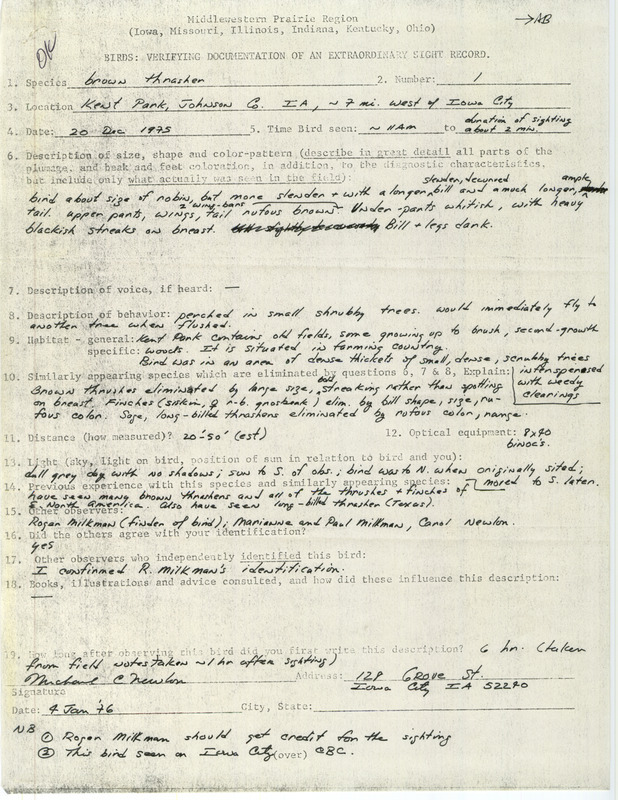 Middlewestern Prairie Region
→AB
(Iowa, Missouri, Illinois, Indiana, Kentucky, Ohio)
OK
BIRDS: VERIFYING DOCUMENTATION OF AN EXTRAORDINARY SIGHT RECORD.
1. Species brown thrasher 2. Number: 1
3. Location Kent Park, Johnson Co. IA, ~ 7 mi. west of Iowa City
4. Date: 20 Dec 1975 5. Time Bird seen: ~ 11AM to duration of sighting about 2 min.
6. Description of size, shape and color-pattern (describe in great detail all parts of the
plumage, and beak and feet coloration, in addition, to the diagnostic characteristics,
but include only what actually was seen in the field): slender, decurved ample,
bird about size of robin, but more slender + with a longer bill and a much longer,
tail. upper parts, wings, tail rufous brown. Under-parts whitish, with heavy
2 wing-bars
blackish streaks on breast. Bill + legs dark.
7. Description of voice, if heard: —
8. Description of behavior: perched in small shrubby trees. would immediately fly to
another tree when flushed.
9. Habitat - general: Kent Park contains old fields, some growing up to brush, second-growth
specific: woods. It is situated in farming country.
Bird was in an area of dense thickets of small, dense, scrubby trees
interspersed with weedy clearings
10. Similarly appearing species which are eliminated by questions 6, 7 & 8, Explain:
Brown thrushes eliminated by large size, bold streaking rather than spotting
on breast. Finches (siskin, ♀ r-b. grosbeak) elim. by bill shape, size, ru-
fous color. Sage, long-billed thrashers eliminated by rufous color, range.
11. Distance (how measured)? 20'-50' (est) 12. Optical equipment: 8x40
binoc's.
13. Light (sky, light on bird, position of sun in relation to bird and you):
dull grey day with no shadows; sun to S. of obs.; bird was to N. when originally sited;
moved to S. later.
14. Previous experience with this species and similarly appearing species:
have seen many brown thrashers and all of the thrushes + finches of
E. North America. Also have seen long-billed thrasher (Texas).
15. Other observers:
Roger Milkman (finder of bird); Marianne and Paul Milkman, Carol Newlon.
16. Did the others agree with your identification?
yes
17. Other observers who independently identified this bird:
I confirmed R. Milkman's identification.
18. Books, illustrations and advice consulted, and how did these influence this description:
—
19. How long after observing this bird did you first write this description? 6 hr. (taken
from field notes taken ~1 hr after sighting)
Michael C Newlon Address: 128 Grove St.
Iowa City IA 52240
Signature
Date: 4 Jan '76 City, State:
NB
① Roger Milkman should get credit for the sighting
② This bird seen on Iowa City (over) CBC.